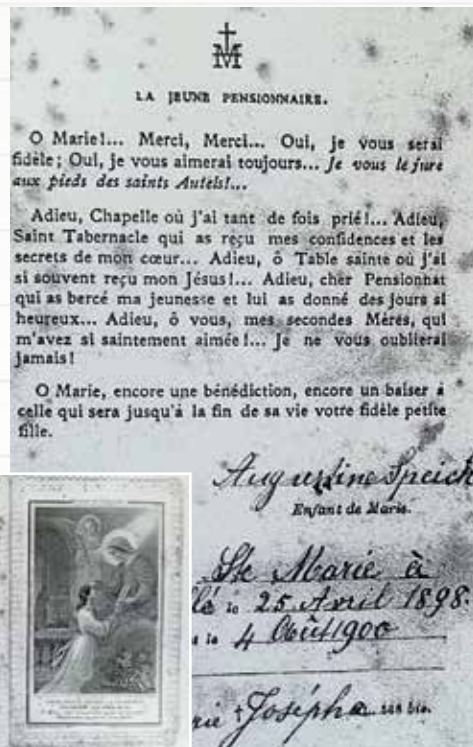 LA JEUNE PENSIONNAIRE.
O Marie!... Merci, Merci... Oui, je vous serai
fidèle; Oui, je vous aimerai toujours... Je vous le jure
aux pieds des saints Autels!...
Adieu, Chapelle où j'ai tant de fois prié!... Adieu,
Saint Tabernacle qui as reçu mes confidences et les
secrets de mon cœur... Adieu, ô Table sainte où j'ai
si souvent reçu mon Jésus!... Adieu, cher Pensionnat
qui as bercé ma jeunesse et lui as donné des jours si
heureux... Adieu, ô vous, mes secondes Mères, qui
m'avez si saintement aimée!... Je ne vous oublierai
jamais!
O Marie, encore une bénédiction, encore un baiser à
celle qui sera jusqu'à la fin de sa vie votre fidèle petite
fille.
Augustine Speich
Enfant de Marie.
Ste Marie à
le 25 Avril 1898.
le 4 Août 1900
Josépha